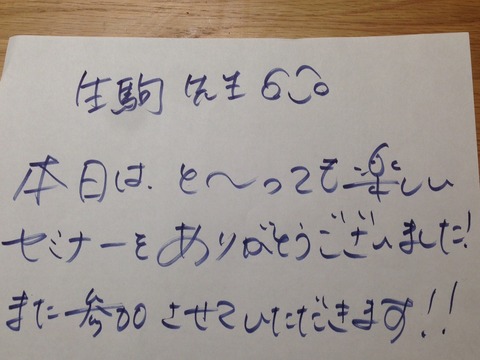 生駒 先生
本日は、と〜っても楽しい
セミナーをありがとうございました!
また参加させていただきます!!